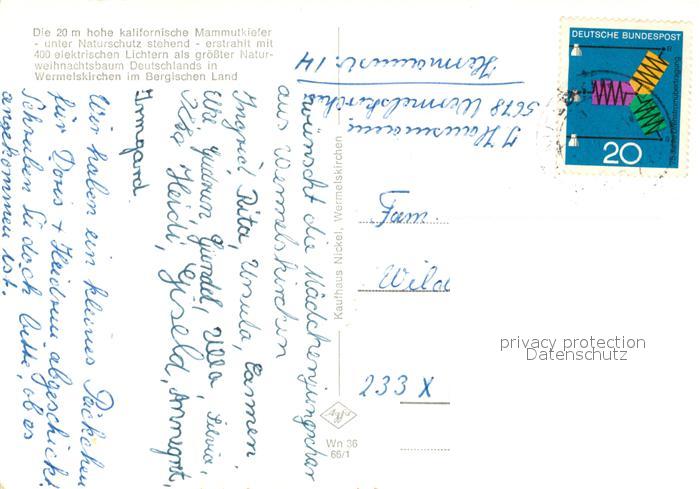 Die 20 m hohe kalifornische Mammutkiefer
- unter Naturschutz stehend - erstrahlt mit
400 elektrischen Lichtern als größter Natur-
weihnachtsbaum Deutschlands in
Wermelskirchen im Bergischen Land
wünscht die Mädchenjungschar
aus Wermelskirchen
Ingrid, Rita, Ursula, Carmen
Elke, Gudrun, Gundel, Ulla, Silvia,
Heidi, Gisela, Annegret,
Irmgard.
Wir haben ein kleines Päckchen
für Doris + Heidrun abgeschickt.
Schreiben Sie doch bitte, ob es
angekommen ist.
Kaufhaus Nickel, Wermelskirchen
Agfa
Wn 36
66/1
J. Hausmann
5678 Wermelskirchen
Hermannstr. 14
DEUTSCHE BUNDESPOST
20
Fam.
Wild
233 X
privacy protection
Datenschutz